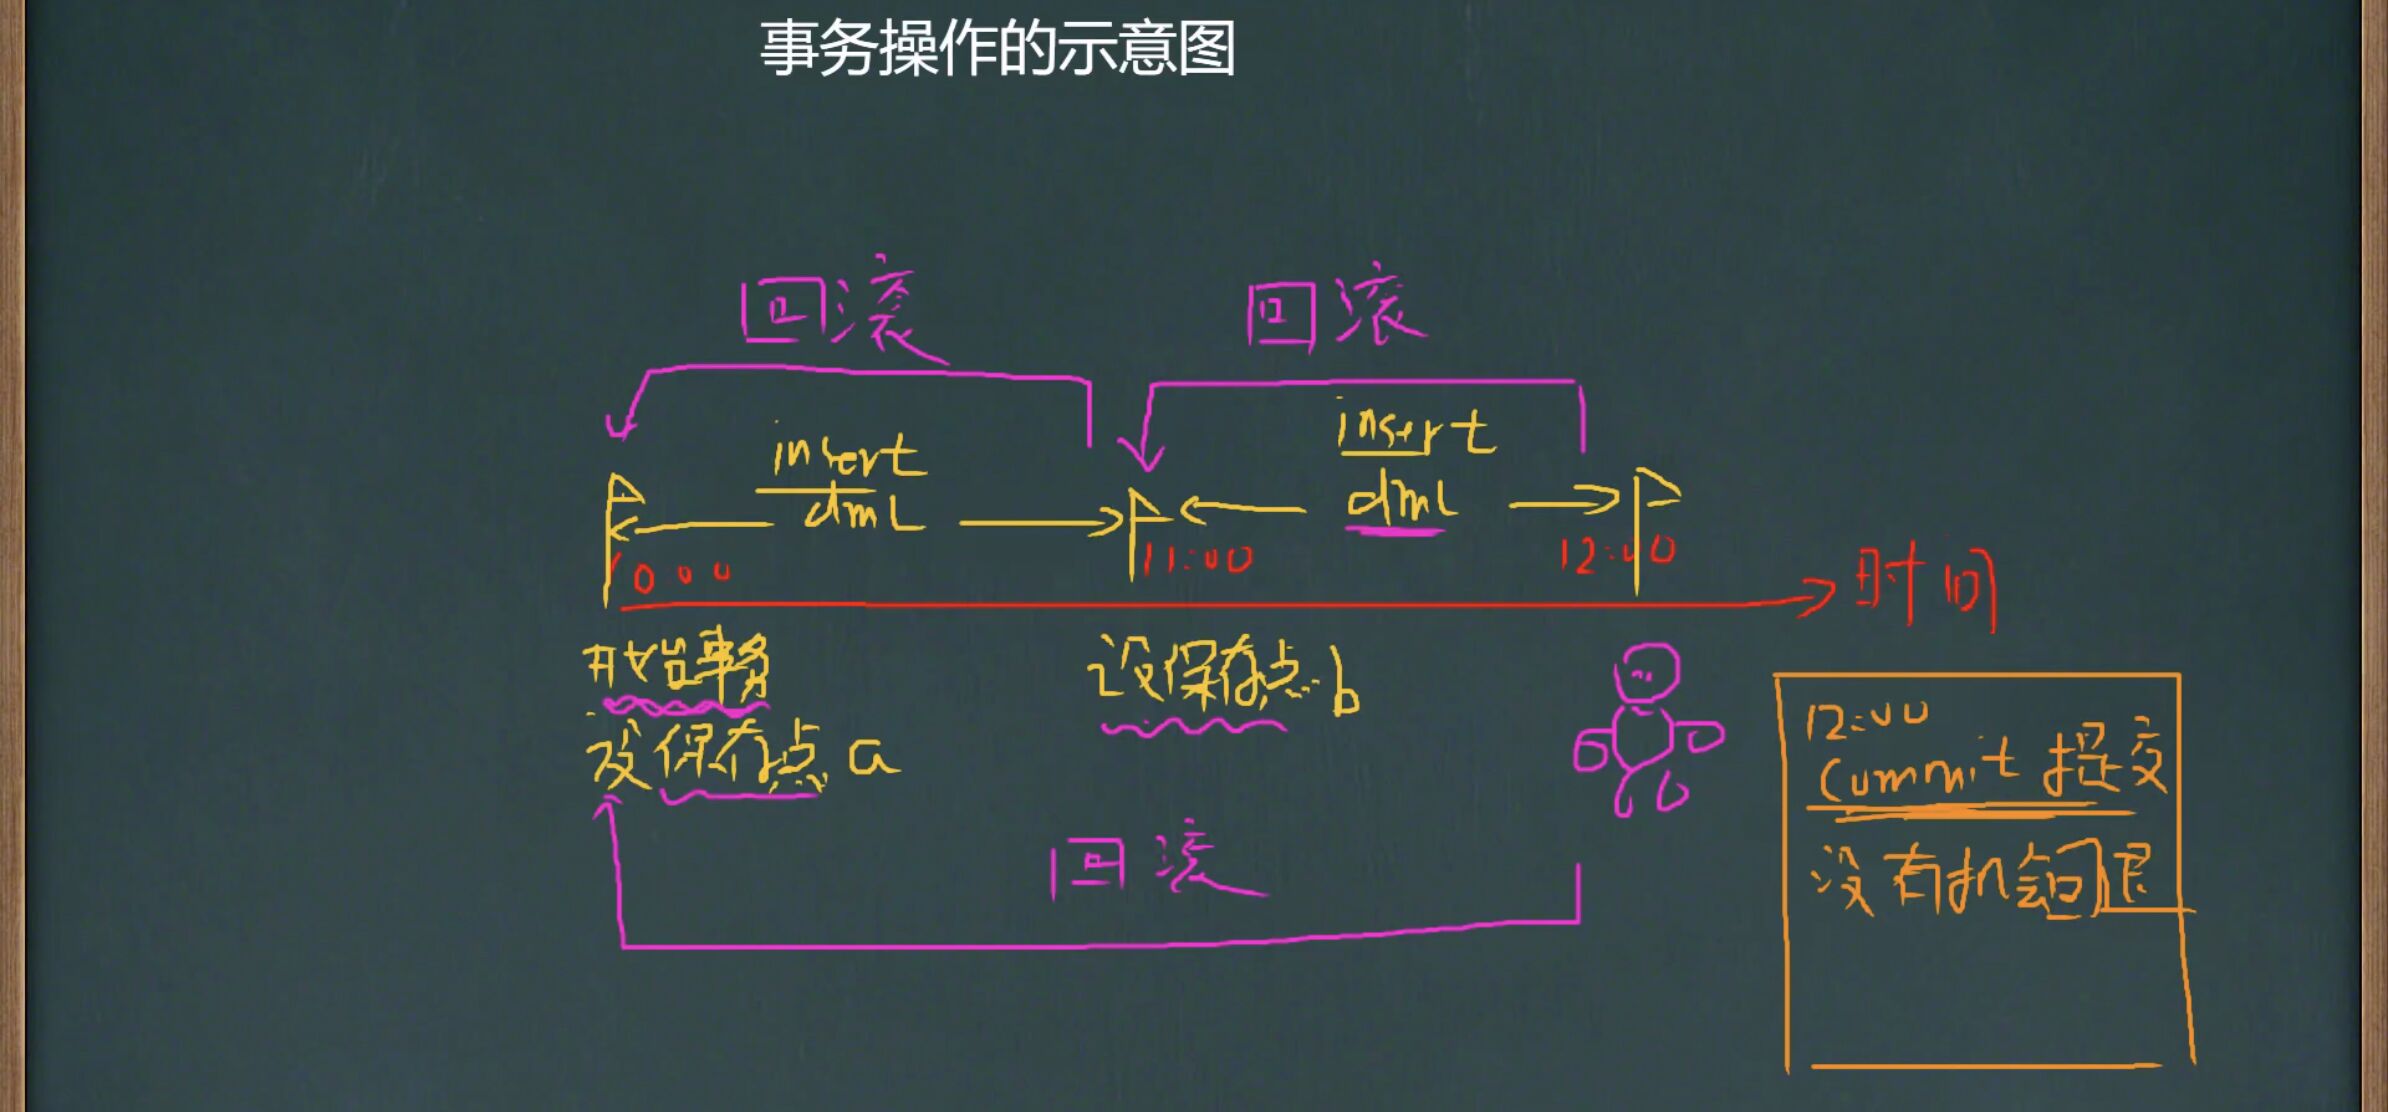 事务操作的示意图
回滚
回滚
insert
dml
insert
dml
10:00
11:00
12:00
时间
开始事务
设保存点 a
设保存点 b
12:00
commit 提交
没有机会回退
回滚